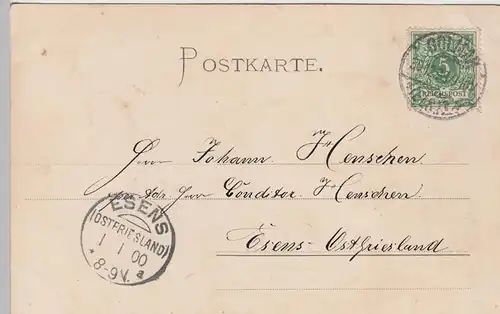 POSTKARTE.
5
REICHSPOST
Herrn Johann Henschen
per Adr. Herrn Conditor Henschen
Esens-Ostfriesland
ESENS
(OSTFRIESLAND)
1 1 00
* 8-9V. a